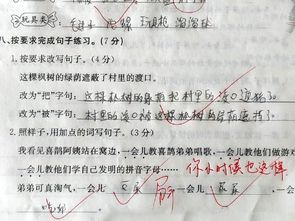 玩具类
八、按要求完成句子练习。(7 分)
1. 按要求改写句子。(4 分)
这棵枫树的绿荫遮蔽了村里的渡口。
改为“把”字句:这棵枫树的绿荫把村里的渡口遮蔽了
改为“被”字句:村里的渡口被枫树的绿荫遮蔽了
2. 照样子,用加点的词写句子。(3 分)
我看见喜鹊阿姨站在窝边,一会儿教喜鹊弟弟唱歌,一会儿教他们做游戏
一会儿教他们学自己发明的拼音字母……
你小时候也这样
弟弟可真淘气,一会儿
一会儿